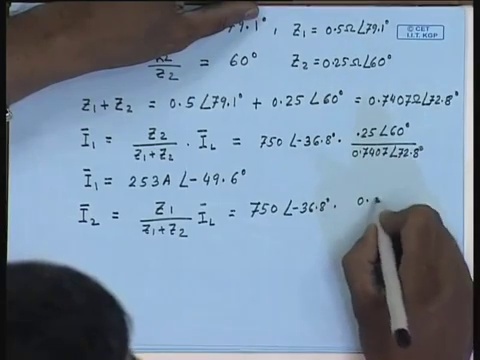 79.1°, Z₁ = 0.5Ω∠79.1°
© CET
I.I.T. KGP
/Z₂ = 60° Z₂ = 0.25Ω∠60°
Z₁+Z₂ = 0.5∠79.1° + 0.25∠60° = 0.7407Ω∠72.8°
Ī₁ = Z₂/(Z₁+Z₂) · Ī_L = 750∠-36.8° · .25∠60°/0.7407∠72.8°
Ī₁ = 253A∠-49.6°
Ī₂ = Z₁/(Z₁+Z₂) Ī_L = 750∠-36.8° · 0.